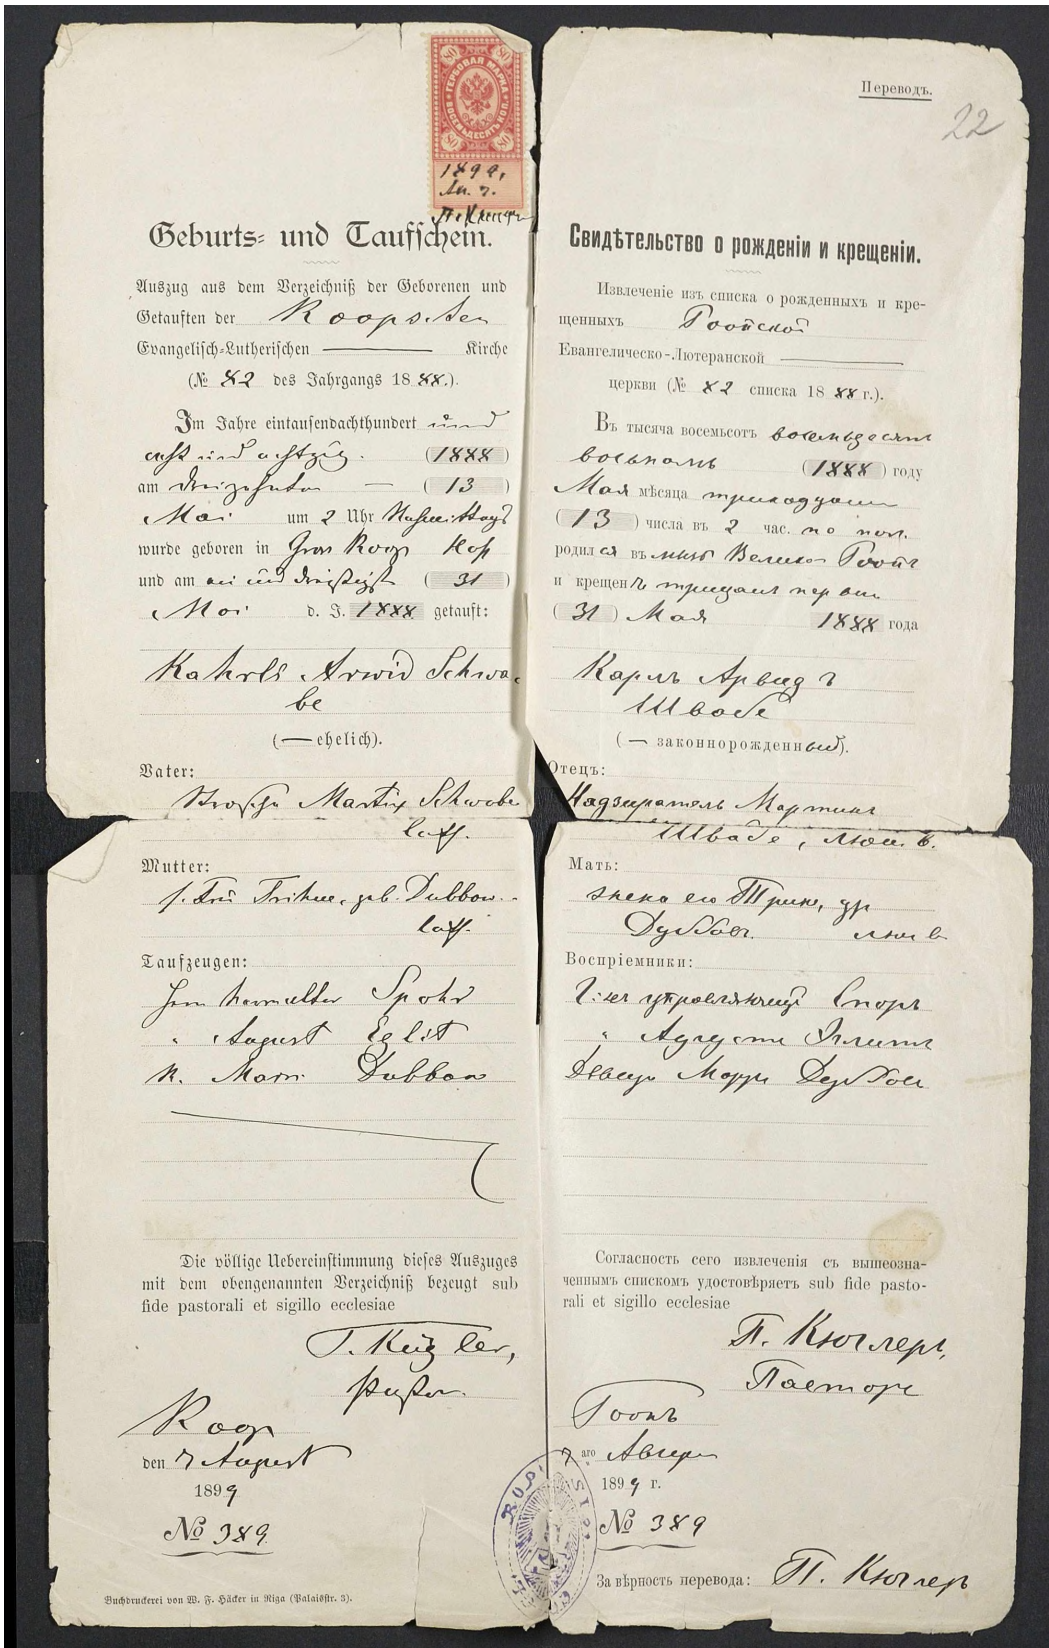 ГЕРБОВАЯ МАРКА
ВОСЕМЬДЕСЯТЪ КОП.
80 80
80 80
1899,
Ав. 7.
П. Кюглеръ
Geburts- und Taufschein.
Auszug aus dem Verzeichniß der Geborenen und
Getauften der Roopschen
Evangelisch-Lutherischen — Kirche
(№ 82 des Jahrgangs 1888.).
Im Jahre eintausendachthundert und
acht und achtzig. (1888)
am dreizehnten — (13)
Mai um 2 Uhr Nachmittags
wurde geboren in Gross Roop Hof
und am ein und dreißigst (31)
Mai d. J. 1888 getauft:
Kahrls Arwid Schwa-
be
(— ehelich).
Vater:
Martin Schwabe
luth.
Mutter:
s. Frau Trihne, geb. Dubbow.
luth.
Taufzeugen:
Herr Verwalter Spohr
" August Eglit
Marri Dubbow
Die völlige Uebereinstimmung dieses Auszuges
mit dem obengenannten Verzeichniß bezeugt sub
fide pastorali et sigillo ecclesiae
P. Kügler,
Pastor.
Roop
den 7 August
1899
№ 389
Buchdruckerei von W. F. Häcker in Riga (Palaisstr. 3).
Переводъ.
22
Свидѣтельство о рожденіи и крещеніи.
Извлеченіе изъ списка о рожденныхъ и кре-
щенныхъ Роопской
Евангелическо-Лютеранской —
церкви (№ 82 списка 1888 г.).
Въ тысяча восемьсотъ восемьдесятъ
восьмомъ (1888) году
Мая мѣсяца тринадцатаго
(13) числа въ 2 час. по пол.
родился въ Велико Роопъ
и крещенъ тридцать перваго
(31) Мая 1888 года
Карлъ Арвидъ
Швабе
(— законнорожденный).
Отецъ:
Надзиратель Мартинъ
Швабе, лют. в.
Мать:
жена его Трине, ур
Дуббовъ. лют в
Воспріемники:
Г:нъ управляющій Споръ
" Августъ Эглитъ
Дѣвица Марри Дуббовъ
Согласность сего извлеченія съ вышеозна-
ченнымъ спискомъ удостовѣряетъ sub fide pasto-
rali et sigillo ecclesiae
П. Кюглеръ,
Пасторъ
Роопъ
7 аго Августа
1899 г.
№ 389
За вѣрность перевода: П. Кюглеръ